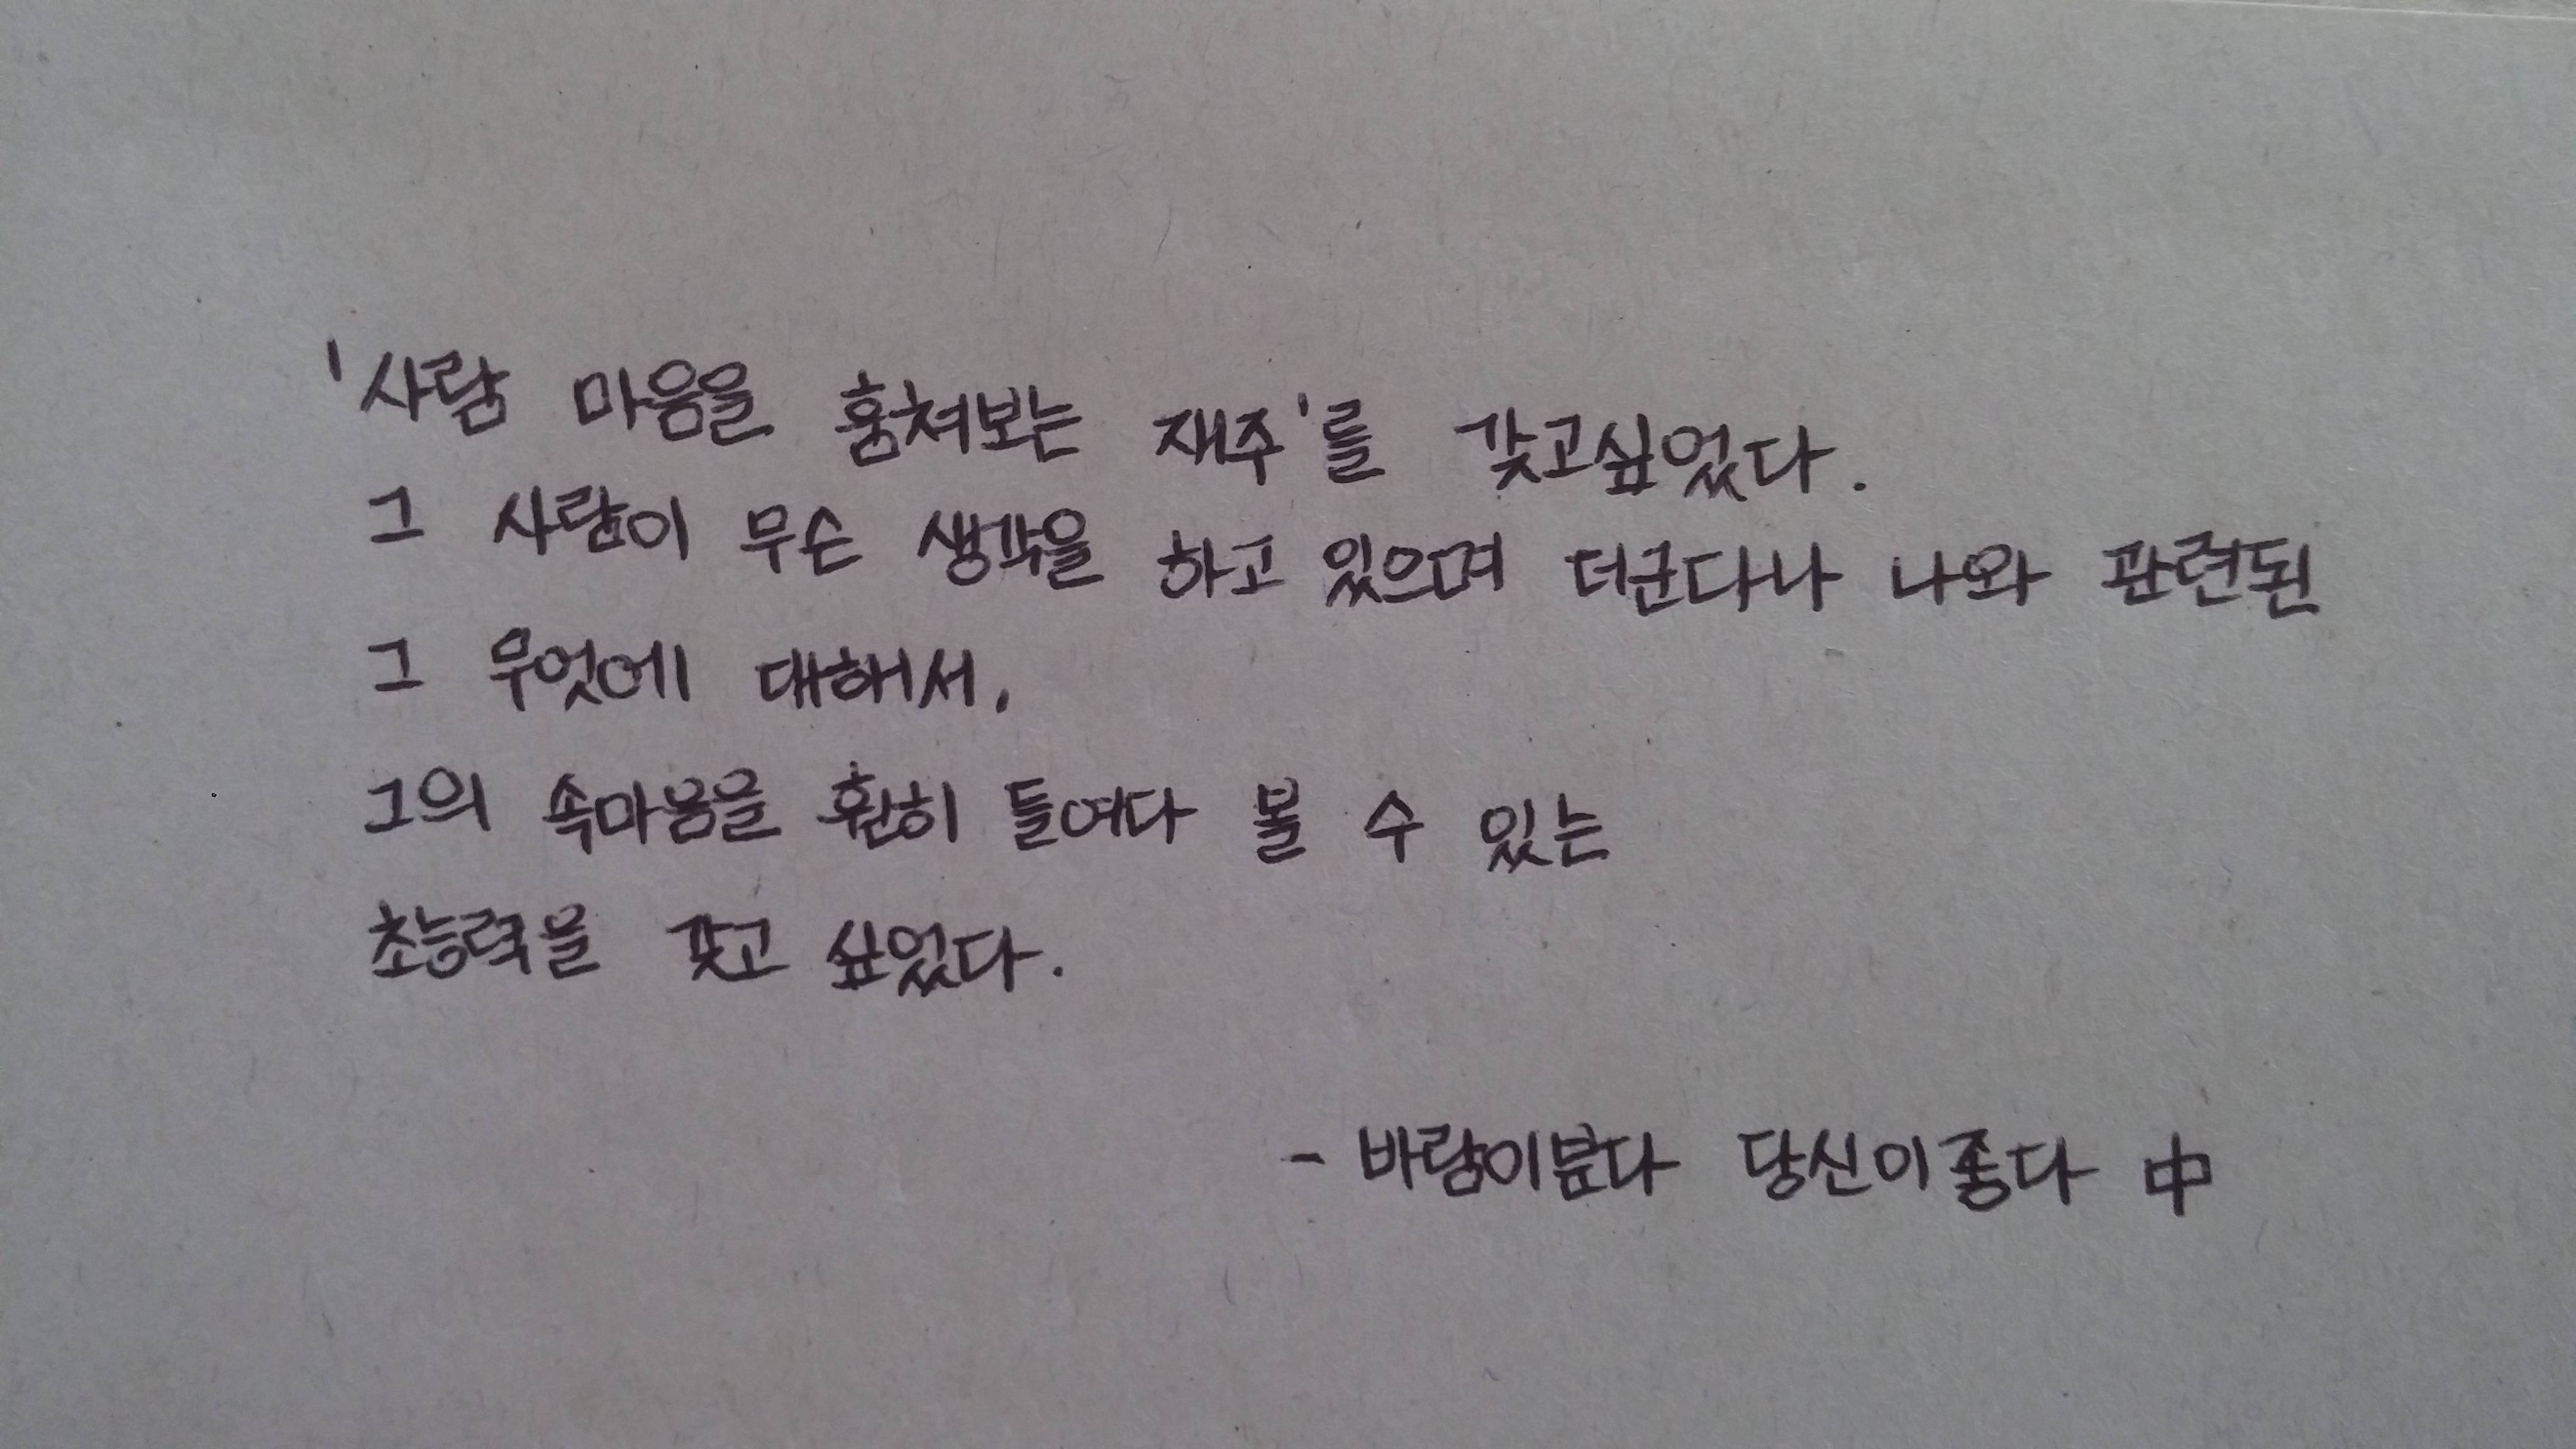 '사람 마음을 훔쳐보는 재주'를 갖고싶었다.
그 사람이 무슨 생각을 하고 있으며 더군다나 나와 관련된
그 무엇에 대해서,
그의 속마음을 훤히 들여다 볼 수 있는
초능력을 갖고 싶었다.
- 바람이분다 당신이좋다 中